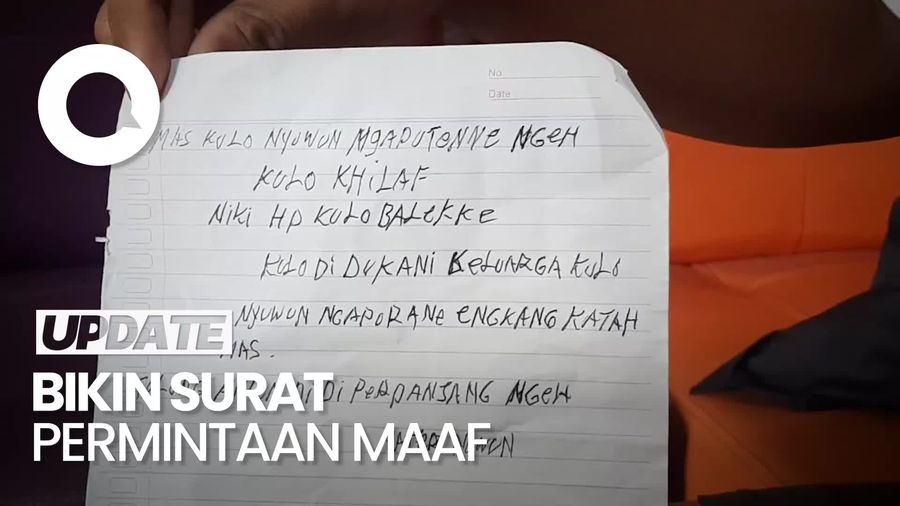 No
Date
MAS KULO NYUWUN NGAPUTENNE NGEH
KULO KHILAF
NIKI HP KULO BALEKKE
KULO DI DUKANI KELUARGA KULO
NYUWUN NGAPORANE ENGKANG KATAH
MAS.
DI PERPANJANG NGEH
UPDATE
BIKIN SURAT
PERMINTAAN MAAF